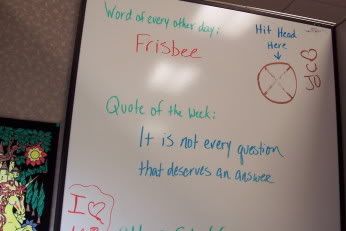 Word of every other day:
Frisbee
Hit Head
Here
Quote of the Week:
It is not every question
that deserves an answer
I